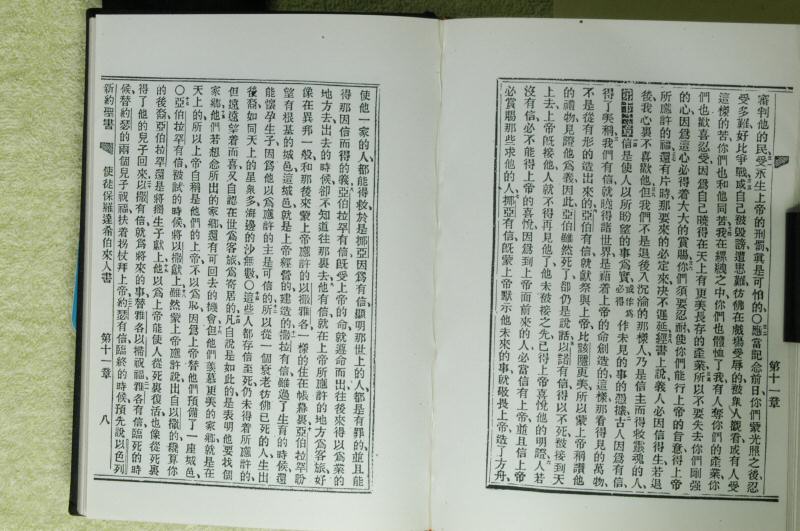 第十一章
審判他的民、受永生上帝的刑罰、眞是可怕的、〇應當記念前日、你們蒙光照之後、忍
受多難、好比爭戰、或自己被毀謗遭患難、彷彿在戲場受辱的、被衆人觀看、或有人受
這樣的苦、你們也和他同苦、我在縲絏之中、你們也體恤了我、有人奪你們的產業、你
們也歡喜忍受、因爲自己曉得在天上有更美長存的產業、所以不要失去你們剛强
的心、因爲這心必得着大大的賞賜、你們須要忍耐、使你們能行上帝的旨意、得上帝
所應許的福、還有片時、那要來的必定來、決不遲延、經書上說、義人必因信得生、若退
後、我心裏不喜歡他、但我們不是退後入沉淪的那樣人、乃是信主而得救靈魂的人、
信是使人以所盼望的事爲實、作未見的事的憑據、古人因爲有信、
得了美稱、我們有信、就曉得諸世界是藉着上帝的命創造的、這樣那看得見的萬物、
不是從有形的造出來的、亞伯有信、就獻祭與上帝、比該隱更美、所以蒙上帝稱讚他
的禮物、見證他爲義、因此亞伯雖然死了、卻仍是說話、以諾有信、得以不死、被接到天
上去、上帝旣接他、人就不得再見他了、他未被接之先、已得上帝喜悅他的明證、人若
沒有信、必不能得上帝的喜悅、因爲到上帝面前來的人、必當信有上帝、並且信上帝
必賞賜那些求他的人、挪亞有信、旣蒙上帝默示他未來的事、就敬畏上帝、造了方舟、
使他一家的人、都能得救、於是挪亞有信、顯明那世上的人、都是有罪的、並且能
得那因信而得的義、亞伯拉罕有信、旣受上帝的命、就遵命而出、往後來得以爲業的
地方去、出去的時候、卻不知道往那裏去、他有信、就在上帝所應許的地方爲客旅、好
像在異邦一般、和那後來蒙上帝應許的以撒雅各一樣的住在帳幕裏、亞伯拉罕盼
望有根基的城邑、這城邑就是上帝經營的、建造的、撒拉有信、雖過了生育的時候、還
能懷孕生子、因爲他以爲應許的主是可信的、所以從一個衰老彷彿已死的人、生出
後裔、如同天上的星衆多、海邊的沙無數、〇這些人都存信至死、仍未得着所應許的、
但遠遠望着而喜、又自認在世爲客旅、爲寄居的、凡自說是如此的、是表明他要找個
家鄉、他們若想念所出的家鄉、還有可回去的機會、但他們羨慕更美的家鄉、就是在
天上的、所以上帝自稱是他們的上帝、不以爲恥、因爲上帝替他們預備了一座城邑、
〇亞伯拉罕有信、被試的時候、將以撒獻上、雖然蒙上帝應許說、出自以撒的、纔算你
的後裔、亞伯拉罕還是將獨生子獻上、他以爲上帝能使人從死裏復活、也像從死裏
得了他的兒子回來、以撒有信、就爲將來的事、替雅各以掃祝福、雅各有信、臨死的時
候、替約瑟的兩個兒子祝福、扶着拐杖拜上帝、約瑟有信、臨終的時候、預先說以色列
新約聖書　使徒保羅達希伯來人書　第十一章　八